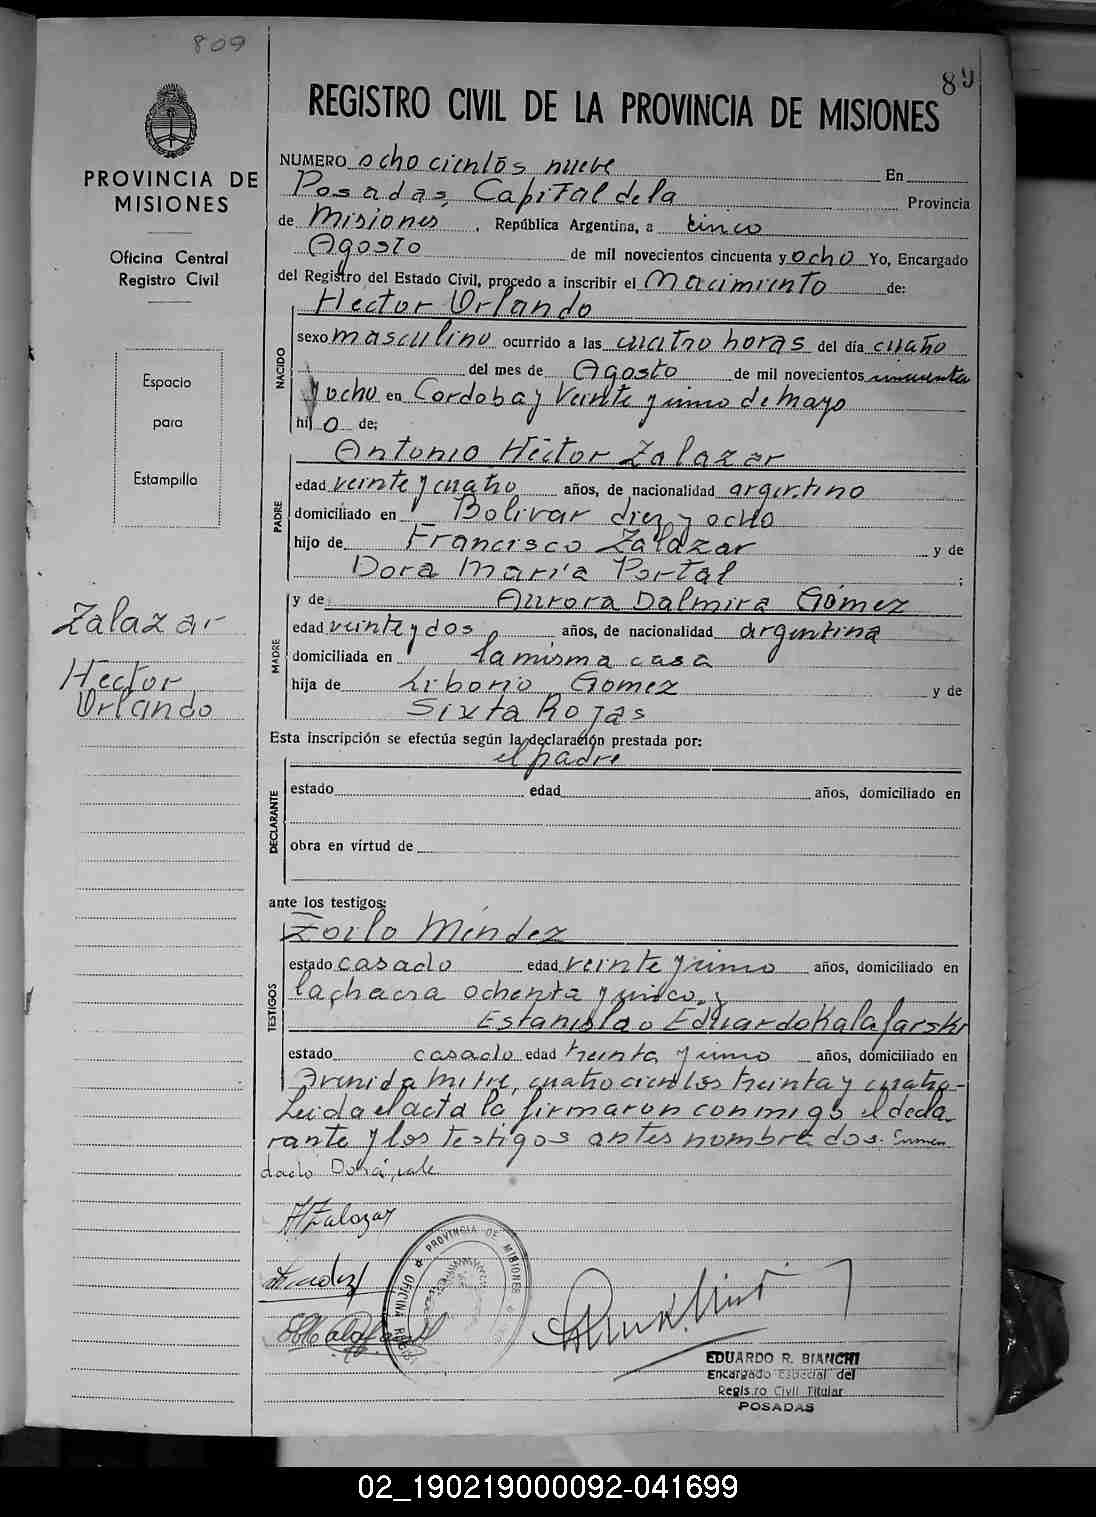 809
89
PROVINCIA DE
MISIONES
Oficina Central
Registro Civil
Espacio
para
Estampilla
Zalazar
Hector
Orlando
REGISTRO CIVIL DE LA PROVINCIA DE MISIONES
NUMERO ochocientos nueve En
Posadas, Capital de la Provincia
de Misiones, República Argentina, a cinco
Agosto de mil novecientos cincuenta y ocho Yo, Encargado
del Registro del Estado Civil, procedo a inscribir el Nacimiento de:
Hector Orlando
NACIDO
sexo masculino ocurrido a las cuatro horas del día cuatro
del mes de Agosto de mil novecientos cincuenta
y ocho en Cordoba y Veinte y cinco de Mayo
hijo de:
Antonio Héctor Zalazar
PADRE
edad veinte y cuatro años, de nacionalidad argentino
domiciliado en Bolivar diez y ocho
hijo de Francisco Zalazar y de
Dora María Portal ;
y de Aurora Dalmira Gómez
MADRE
edad veinte y dos años, de nacionalidad argentina
domiciliada en la misma casa
hija de Liborio Gomez y de
Sixta Rojas
Esta inscripción se efectúa según la declaración prestada por:
el padre
DECLARANTE
estado edad años, domiciliado en
obra en virtud de
ante los testigos:
Zoilo Méndez
TESTIGOS
estado casado edad veinte y uno años, domiciliado en
la chacra ochenta y cinco, y
Estanislao Eduardo Kalafarski
estado casado edad treinta y uno años, domiciliado en
Avenida Mitre, cuatrocientos treinta y cuatro-
Leida el acta la firmaron conmigo el decla-
rante y los testigos antes nombrados. Enmen
dado Dora, vale
HZalazar
Mendez
PROVINCIA DE MISIONES
OFICINA
EDUARDO R. BIANCHI
Encargado Especial del
Registro Civil Titular
POSADAS
02_190219000092-041699